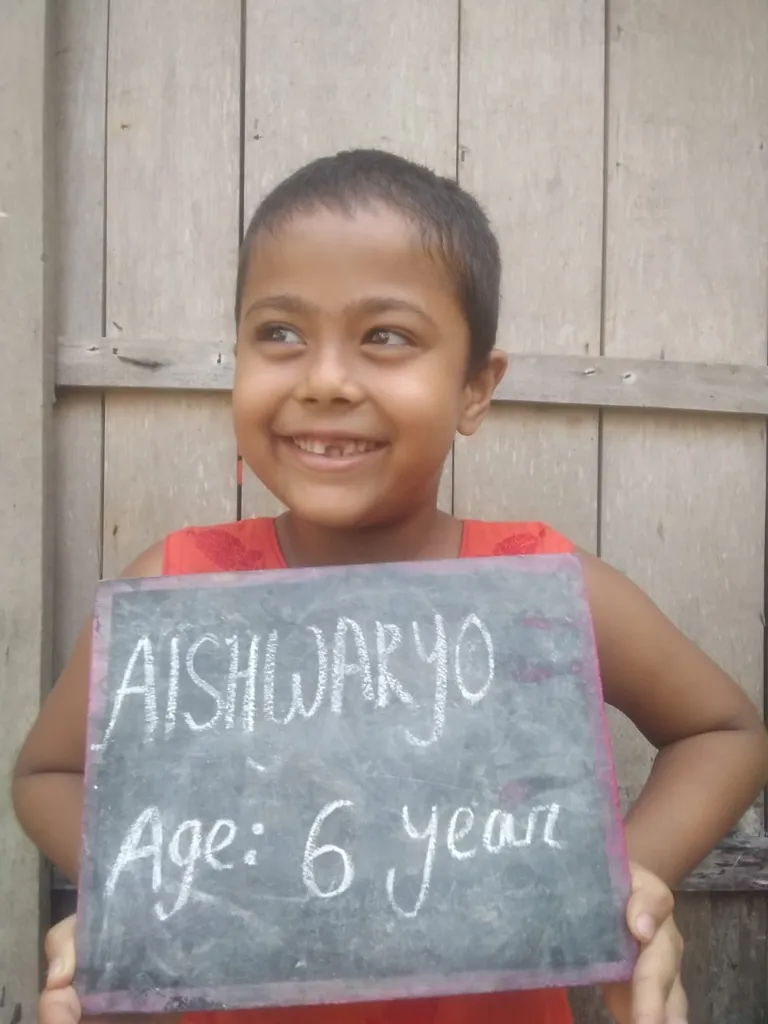 AISHWARYO
Age: 6 year